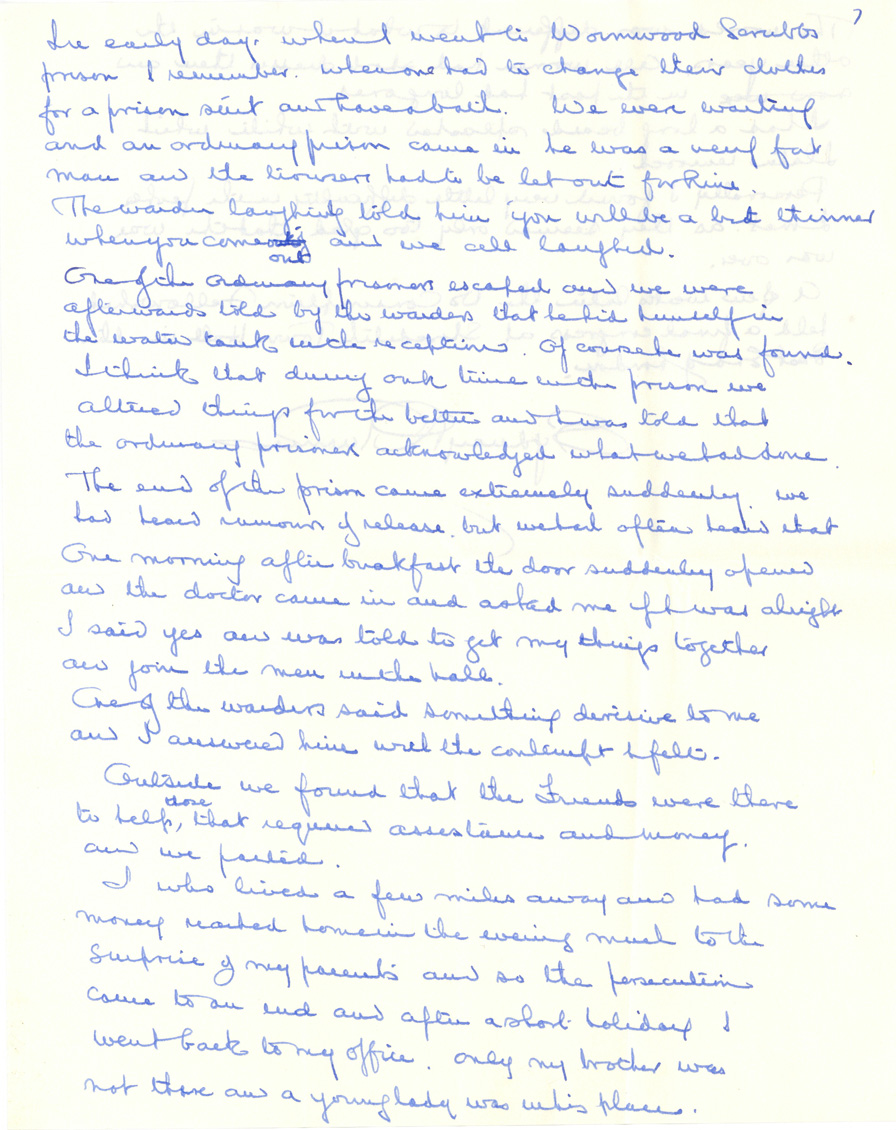 7
In early days when I went to Wormwood Scrubbs
prison I remember. when one had to change their clothes
for a prison suit and have a bath. We were waiting
and an ordinary prison came in he was a very fat
man and the trousers had to be let out for him.
The warder laughing told him 'you will be a bit thinner
when you come out' and we all laughed.
One of the ordinary prisoners escaped and we were
afterwards told by the warders that he hid himself in
the water tank in the reception. Of course he was found.
I think that during our time in the prison we
altered things for the better and I was told that
the ordinary prisoners acknowledged what we had done.
The end of the prison came extremely suddenly. we
had heard rumours of release. but we had often heard that
One morning after breakfast the door suddenly opened
and the doctor came in and asked me if I was alright
I said yes and was told to get my things together
and join the men in the hall.
One of the warders said something derisive to me
and I answered him with the contempt I felt.
Outside we found that the Friends were there
to help, those that required assistance and money.
and we parted.
I who lived a few miles away and had some
money reached home in the evening much to the
surprise of my parents and so the persecution
came to an end and after a short holiday I
went back to my office. only my brother was
not there and a young lady was in his place.